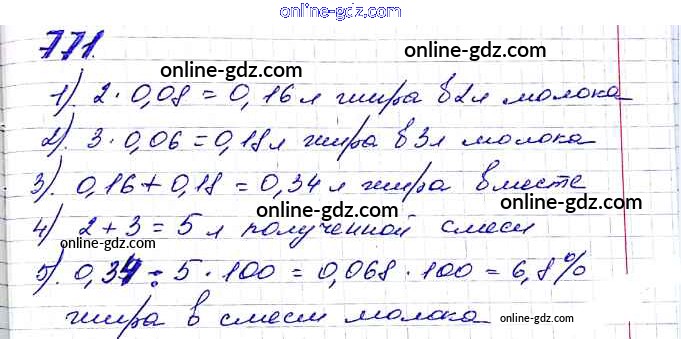 online-gdz.com
771.
online-gdz.com
online-gdz.com
1). 2 · 0,08 = 0,16 л жира в 2 л молока
2). 3 · 0,06 = 0,18 л жира в 3 л молока
3). 0,16 + 0,18 = 0,34 л жира вместе
online-gdz.com
online-gdz.com
4) 2 + 3 = 5 л полученной смеси
5). 0,34 : 5 · 100 = 0,068 · 100 = 6,8%
жира в смеси молока
online-gdz.com